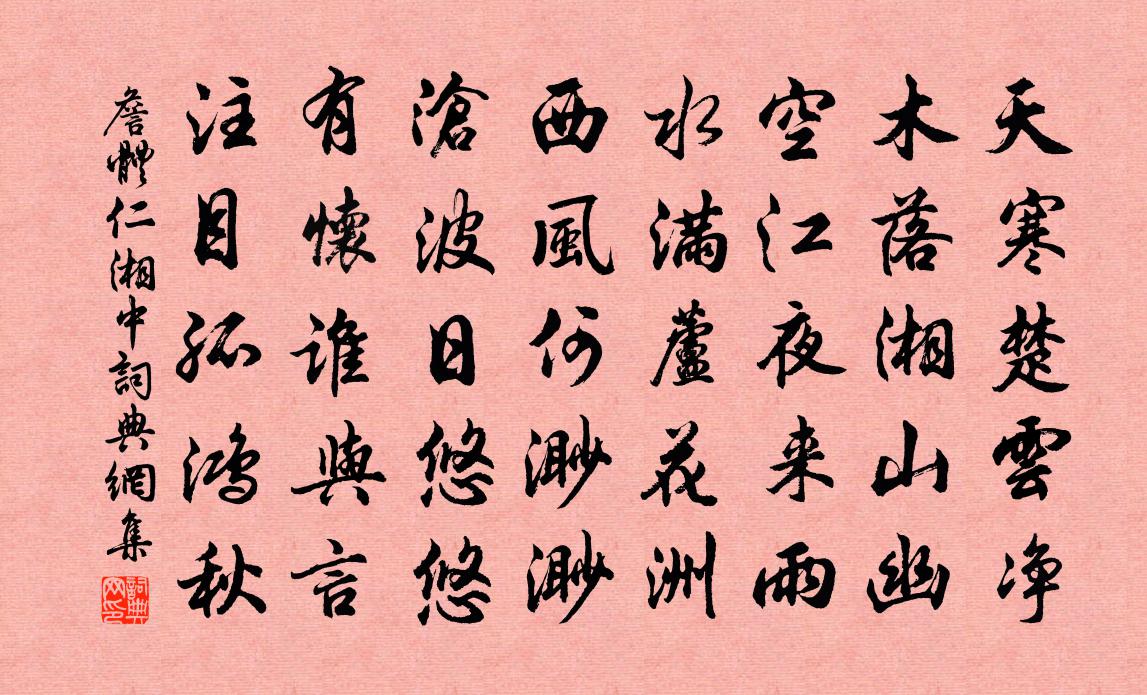 天寒楚雲净
木落湘山幽
空江夜来雨
水滿蘆花洲
西風何渺渺
滄波日悠悠
有懷誰與言
注目孤鴻秋
詹體仁湘中詞典網集
詞典网印